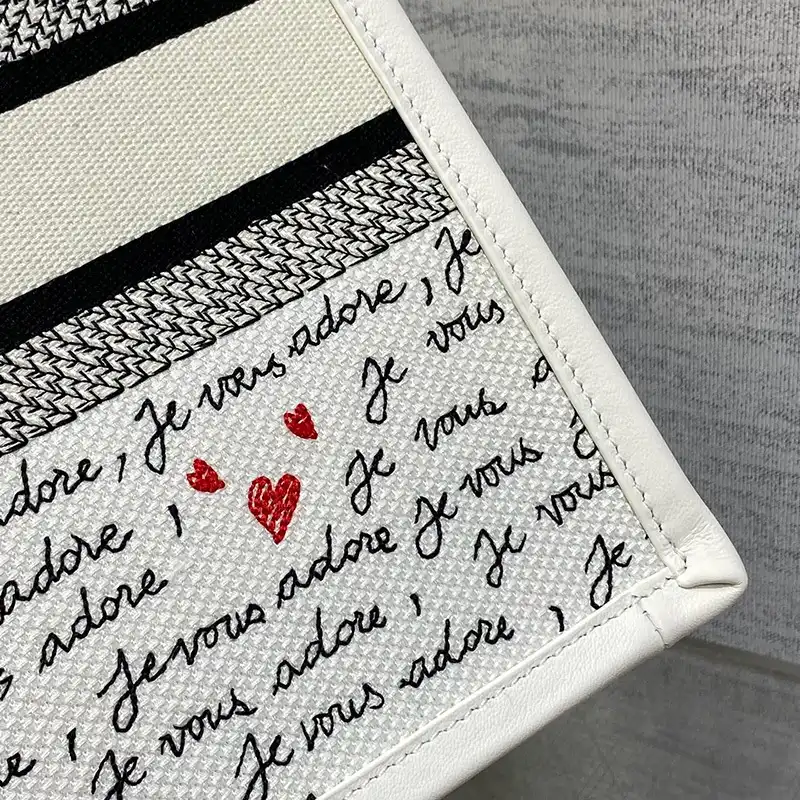 adore, Je vous adore, Je
adore, Je vous
adore Je vous
Je vous adore Je vous
Je vous adore, Je vous
Je vous adore, Je